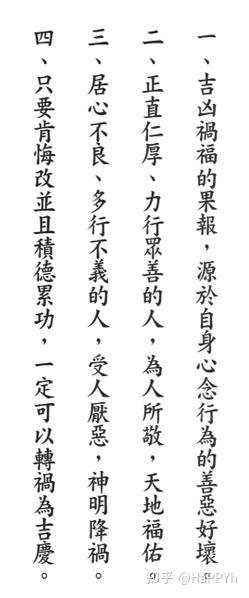 一、吉凶禍福的果報，源於自身心念行為的善惡好壞。
二、正直仁厚、力行眾善的人，為人所敬，天地福佑。
三、居心不良、多行不義的人，受人厭惡，神明降禍。
四、只要肯悔改並且積德累功，一定可以轉禍為吉慶。
知乎 @HaPPYh